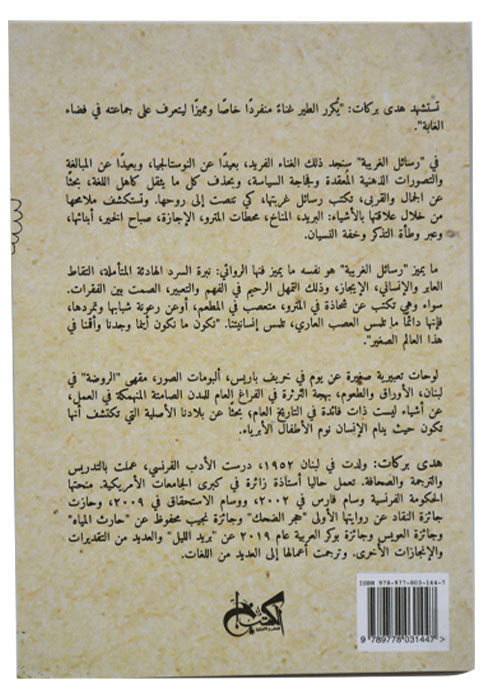 تستشهد هدى بركات: "يُكرر الطير غناءً منفردًا خاصًا ومميزًا ليتعرف على جماعته في فضاء
الغابة".
في "رسائل الغريبة" سنجد ذلك الغناء الفريد، بعيدًا عن النوستالجيا، وبعيدًا عن المبالغة
والتصورات الذهنية المعقدة وفجاجة السياسة، وبحذف كل ما يثقل كاهل اللغة، بحثًا
عن الجمال والقربى، تكتب رسائل غربتها، كي تنصت إلى روحها. وتستكشف ملامحها
من خلال علاقتها بالأشياء: البريد، المناخ، محطات المترو، الإجازة، صباح الخير، أبنائها،
وعبر وطأة التذكر وخفة النسيان.
ما يميز "رسائل الغريبة" هو نفسه ما يميز فنها الروائي: نبرة السرد الهادئة المتأملة، التقاط
العابر والإنساني، الإيجاز، وذلك التمهل الرحيم في الفهم والتعبير، الصمت بين الفقرات.
سواء وهي تكتب عن شحاذة في المترو، متعصب في المطعم، أوعن رعونة شبابها وتمردها،
فإنها دائمًا ما تلمس العصب العاري، تلمس إنسانيتنا. "نكون ما نكون أينما وجدنا وأقنا في
هذا العالم الصغير".
لوحات تعبيرية صغيرة عن يوم في خريف باريس، ألبومات الصور، مقهى "الروضة" في
لبنان، الأوراق والطعوم، بهجة الثرثرة في الفراغ العام للمدن الصامتة المنهمكة في العمل،
عن أشياء ليست ذات فائدة في التاريخ العام؛ بحثًا عن بلادنا الأصلية التي تكتشف أنها
تكون حيث ينام الإنسان نوم الأطفال الأبرياء.
هدى بركات: ولدت في لبنان ١٩٥٢، درست الأدب الفرنسي، عملت بالتدريس
والترجمة والصحافة. تعمل حاليا أستاذة زائرة في كبرى الجامعات الأمريكية. منحتها
الحكومة الفرنسية وسام فارس في ٢٠٠٢، ووسام الاستحقاق في ٢٠٠٩، وحازت
جائزة النقاد عن روايتها الأولى "حجر الضحك" وجائزة نجيب محفوظ عن "حارث المياه"
وجائزة العويس وجائزة بوكر العربية عام ٢٠١٩ عن "بريد الليل" والعديد من التقديرات
والإنجازات الأخرى. وترجمت أعمالها إلى العديد من اللغات.
ISBN 978-977-803-144-7
9 789778 031447 >